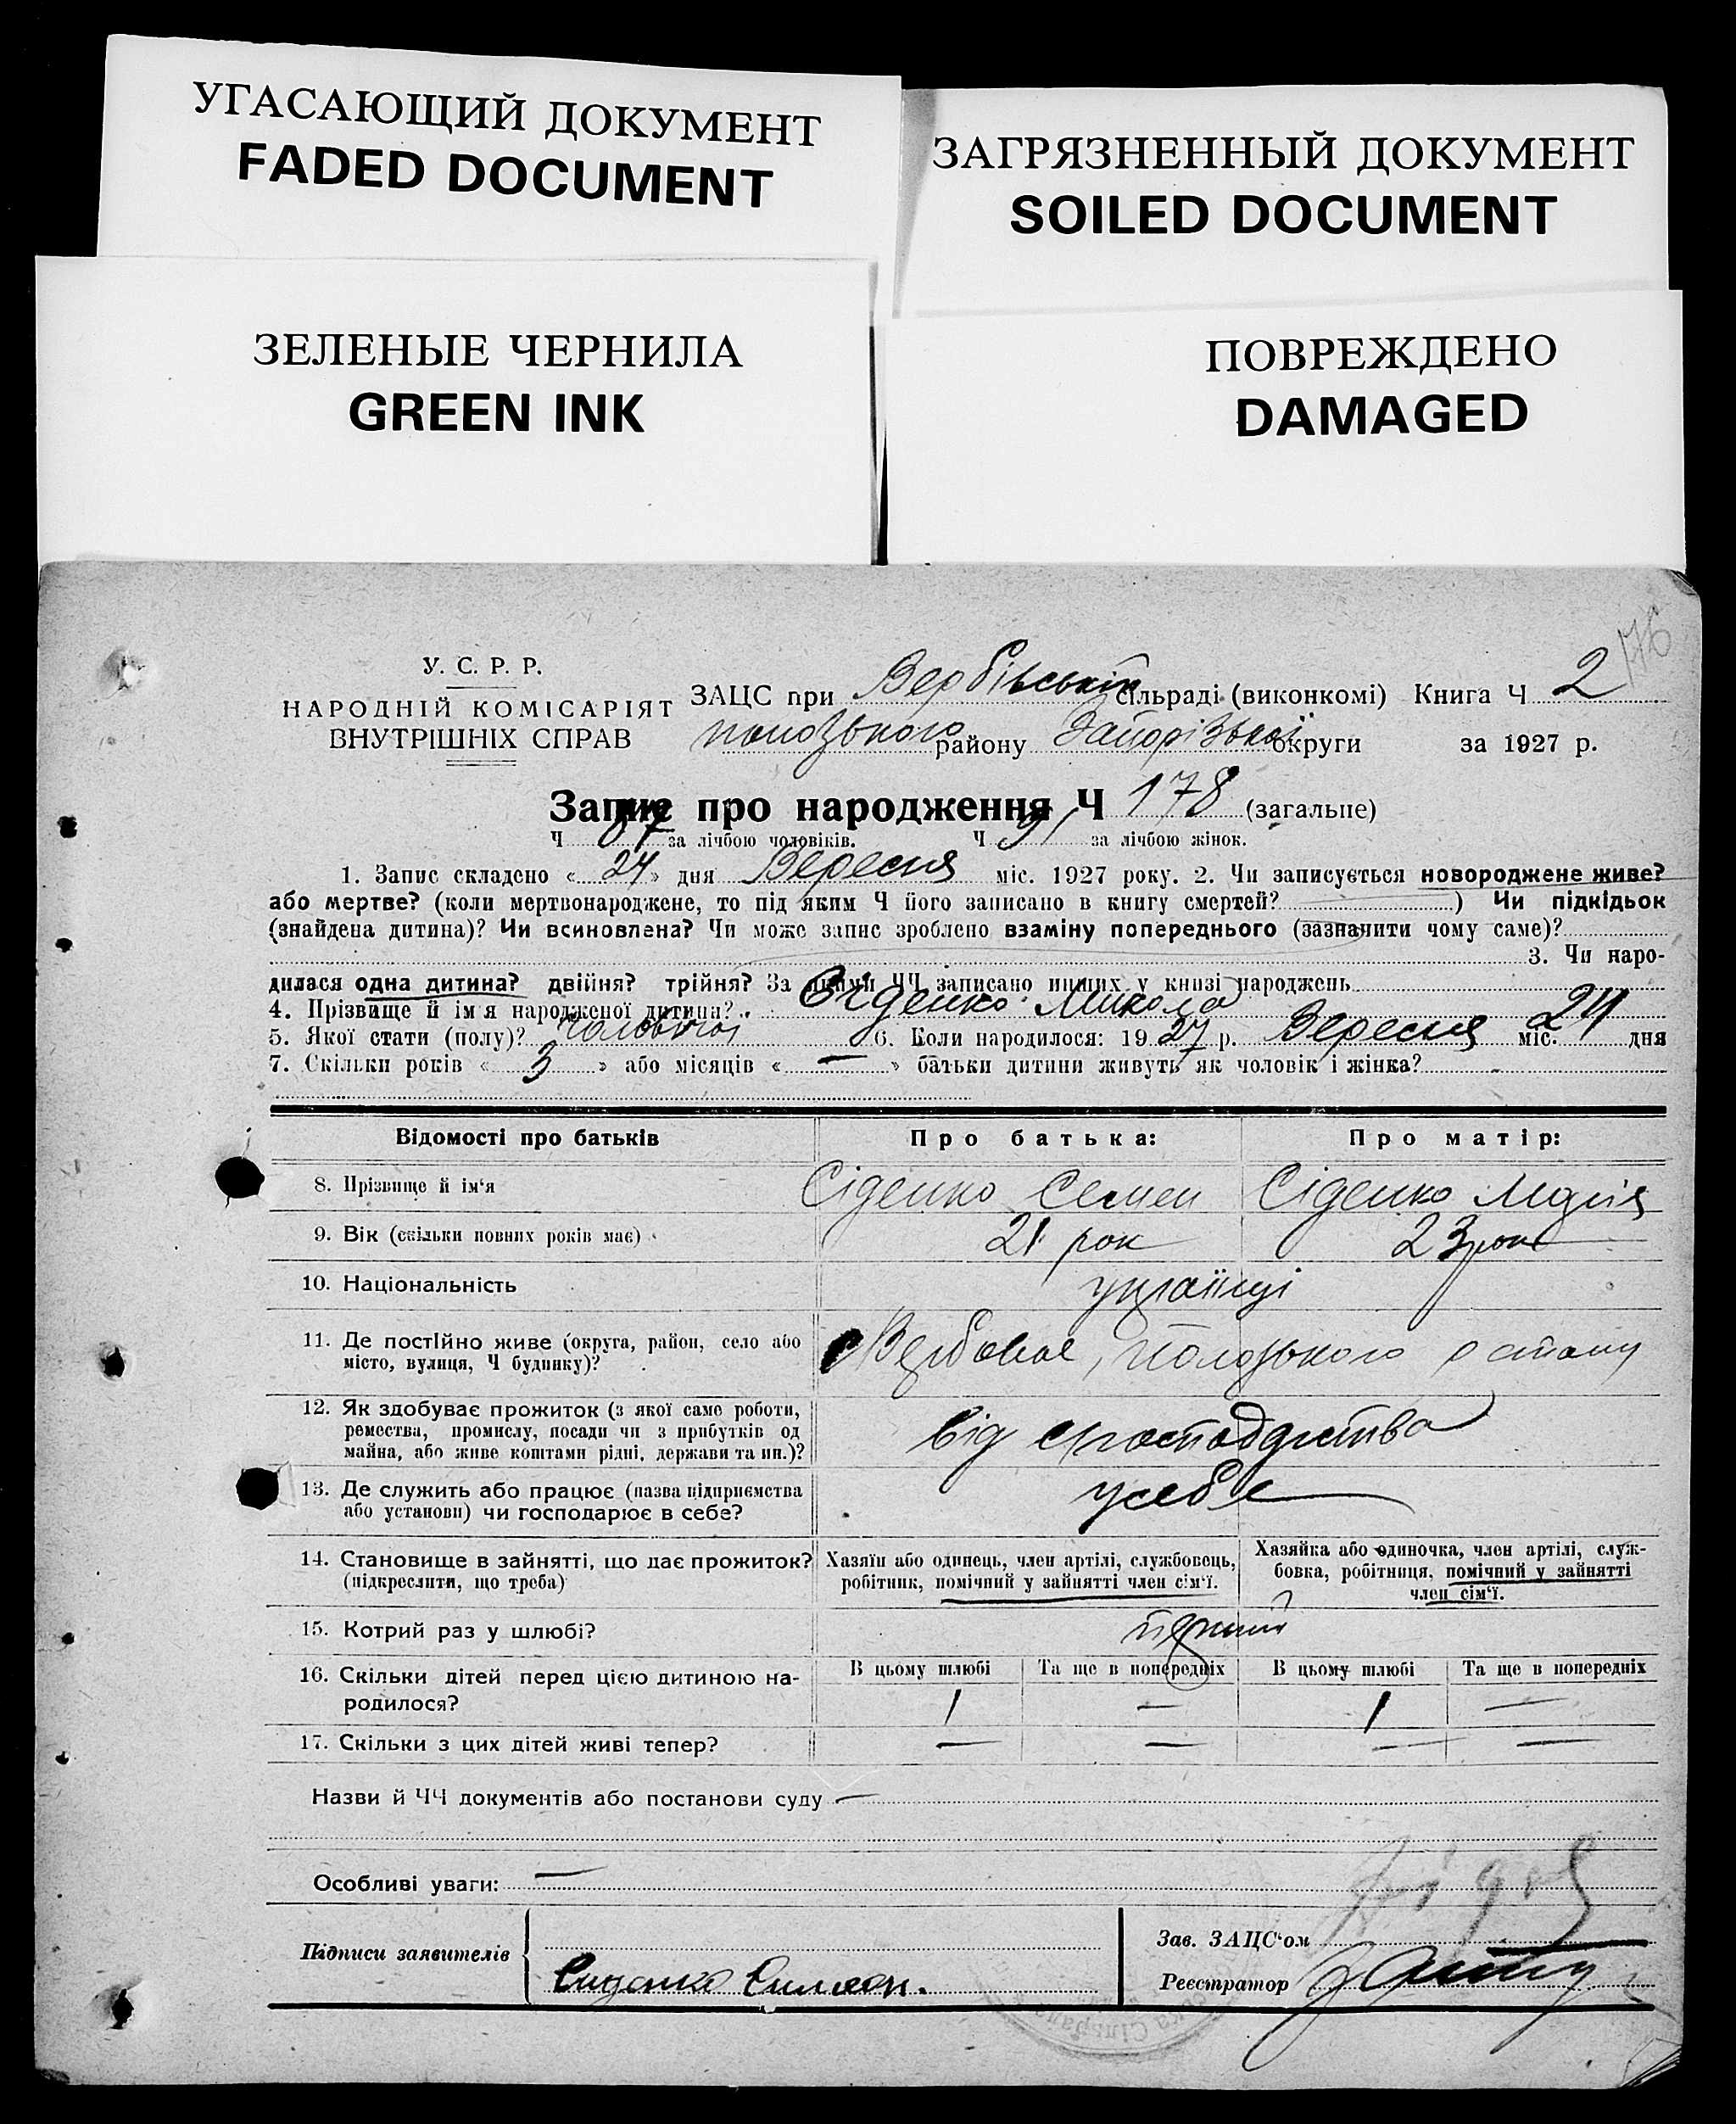 УГАСАЮЩИЙ ДОКУМЕНТ
FADED DOCUMENT
ЗАГРЯЗНЕННЫЙ ДОКУМЕНТ
SOILED DOCUMENT
ЗЕЛЕНЫЕ ЧЕРНИЛА
GREEN INK
ПОВРЕЖДЕНО
DAMAGED
176
У. С. Р. Р.
НАРОДНІЙ КОМІСАРІЯТ
ВНУТРІШНІХ СПРАВ
ЗАЦС при Вербівській сільраді (виконкомі) Книга Ч 2
Пологзького району Запорізької округи за 1927 р.
Запис про народження Ч 178 (загальне)
Ч 87 за лічбою чоловіків. Ч 91 за лічбою жінок.
1. Запис складено « 24 » дня Вересня міс. 1927 року. 2. Чи записується новороджене живе?
або мертве? (коли мертвонароджене, то під яким Ч його записано в книгу смертей? ) Чи підкідьок
(знайдена дитина)? Чи всиновлена? Чи може запис зроблено взаміну попереднього (зазначити чому саме)?
3. Чи наро-
дилася одна дитина? двійня? трійня? За якими ЧЧ записано инших у книзі народжень
4. Прізвище й ім'я народженої дитини? Сіденко Микола
5. Якої стати (полу)? чоловічої 6. Коли народилося: 19 27 р. Вересня міс. 24 дня
7. Скільки років « 3 » або місяців « — » батьки дитини живуть як чоловік і жінка?
Відомості про батьків Про батька: Про матір:
8. Прізвище й ім'я Сіденко Семен Сіденко Марія
9. Вік (скільки повних років має) 21 рок 23 рок
10. Національність українці
11. Де постійно живе (округа, район, село або
місто, вулиця, Ч будинку)? Вербове, Пологзького району
12. Як здобуває прожиток (з якої саме роботи,
ремества, промислу, посади чи з прибутків од
майна, або живе коштами рідні, держави та ин.)? від
13. Де служить або працює (назва підприємства
або установи) чи господарює в себе? у себе
14. Становище в зайнятті, що дає прожиток?
(підкреслити, що треба)
Хазяїн або одинець, член артілі, службовець,
робітник, помічний у зайнятті член сім'ї.
Хазяйка або одиночка, член артілі, служ-
бовка, робітниця, помічний у зайнятті
член сім'ї.
15. Котрий раз у шлюбі? перший
16. Скільки дітей перед цією дитиною на-
родилося?
В цьому шлюбі Та ще в попередніх В цьому шлюбі Та ще в попередніх
1 — 1 —
17. Скільки з цих дітей живі тепер? — — — —
Назви й ЧЧ документів або постанови суду —
Особливі уваги: —
Підписи заявителів
Сиденко Симеон.
Зав. ЗАЦС'ом
Реєстратор